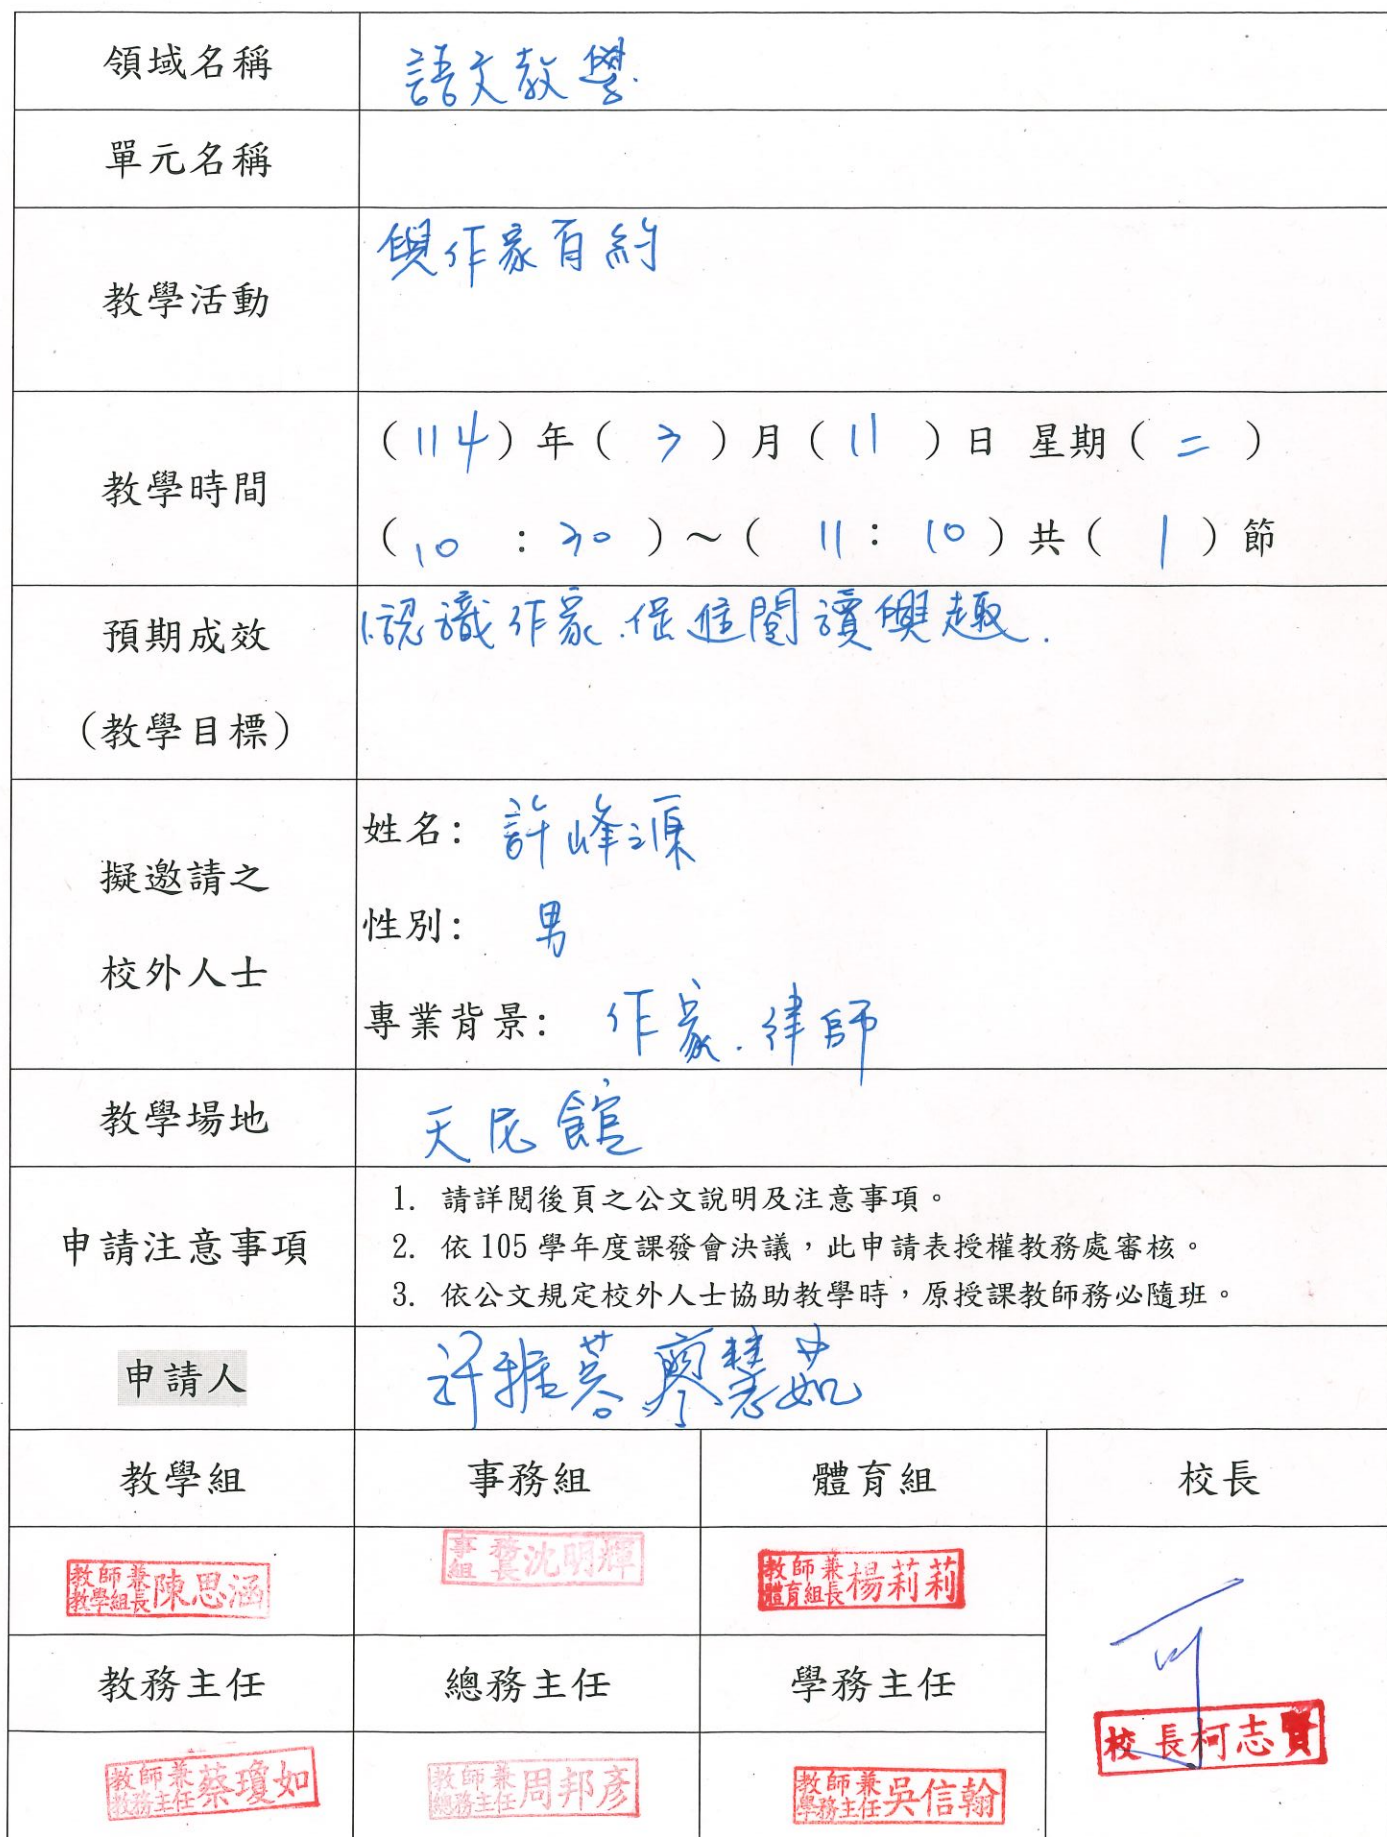 領域名稱 語文教學
單元名稱
教學活動 與作家有約
教學時間
(114)年( 3 )月(11 )日 星期( 二 )
(10 : 30 )～( 11: 10 )共( 1 )節
預期成效
(教學目標)
1.認識作家.促進閱讀興趣.
擬邀請之
校外人士
姓名: 許峰源
性別: 男
專業背景: 作家.律師
教學場地 天民館
申請注意事項
1. 請詳閱後頁之公文說明及注意事項。
2. 依105學年度課發會決議，此申請表授權教務處審核。
3. 依公文規定校外人士協助教學時，原授課教師務必隨班。
申請人 許雅蓉 廖慧茹
教學組 事務組 體育組 校長
教師兼教學組長陳思涵
事務組長沈明輝
教師兼體育組長楊莉莉
可
教務主任 總務主任 學務主任
校長柯志賢
教師兼教務主任蔡瓊如
教師兼總務主任周邦彥
教師兼學務主任吳信翰